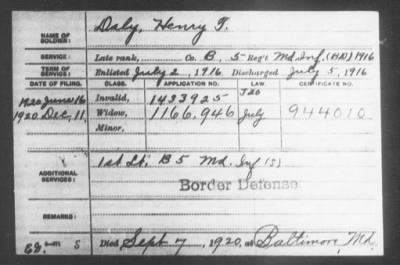 NAME OF SOLDIER: Daly, Henry T.
SERVICE: Late rank, Co. B, 5 Reg't Md. Inf. (BD) 1916
TERM OF SERVICE: Enlisted July 2, 1916. Discharged July 5, 1916
DATE OF FILING. CLASS. APPLICATION NO. LAW CERTIFICATE NO.
1920 June 16 Invalid, 1433925 J20
1920 Dec. 11, Widow, 1166,946 July 944010
Minor,
ADDITIONAL SERVICES: 1st Lt. B 5 Md. Inf (S)
Border Defense
REMARKS:
S Died Sept 7, 1920, at Baltimore, Md.